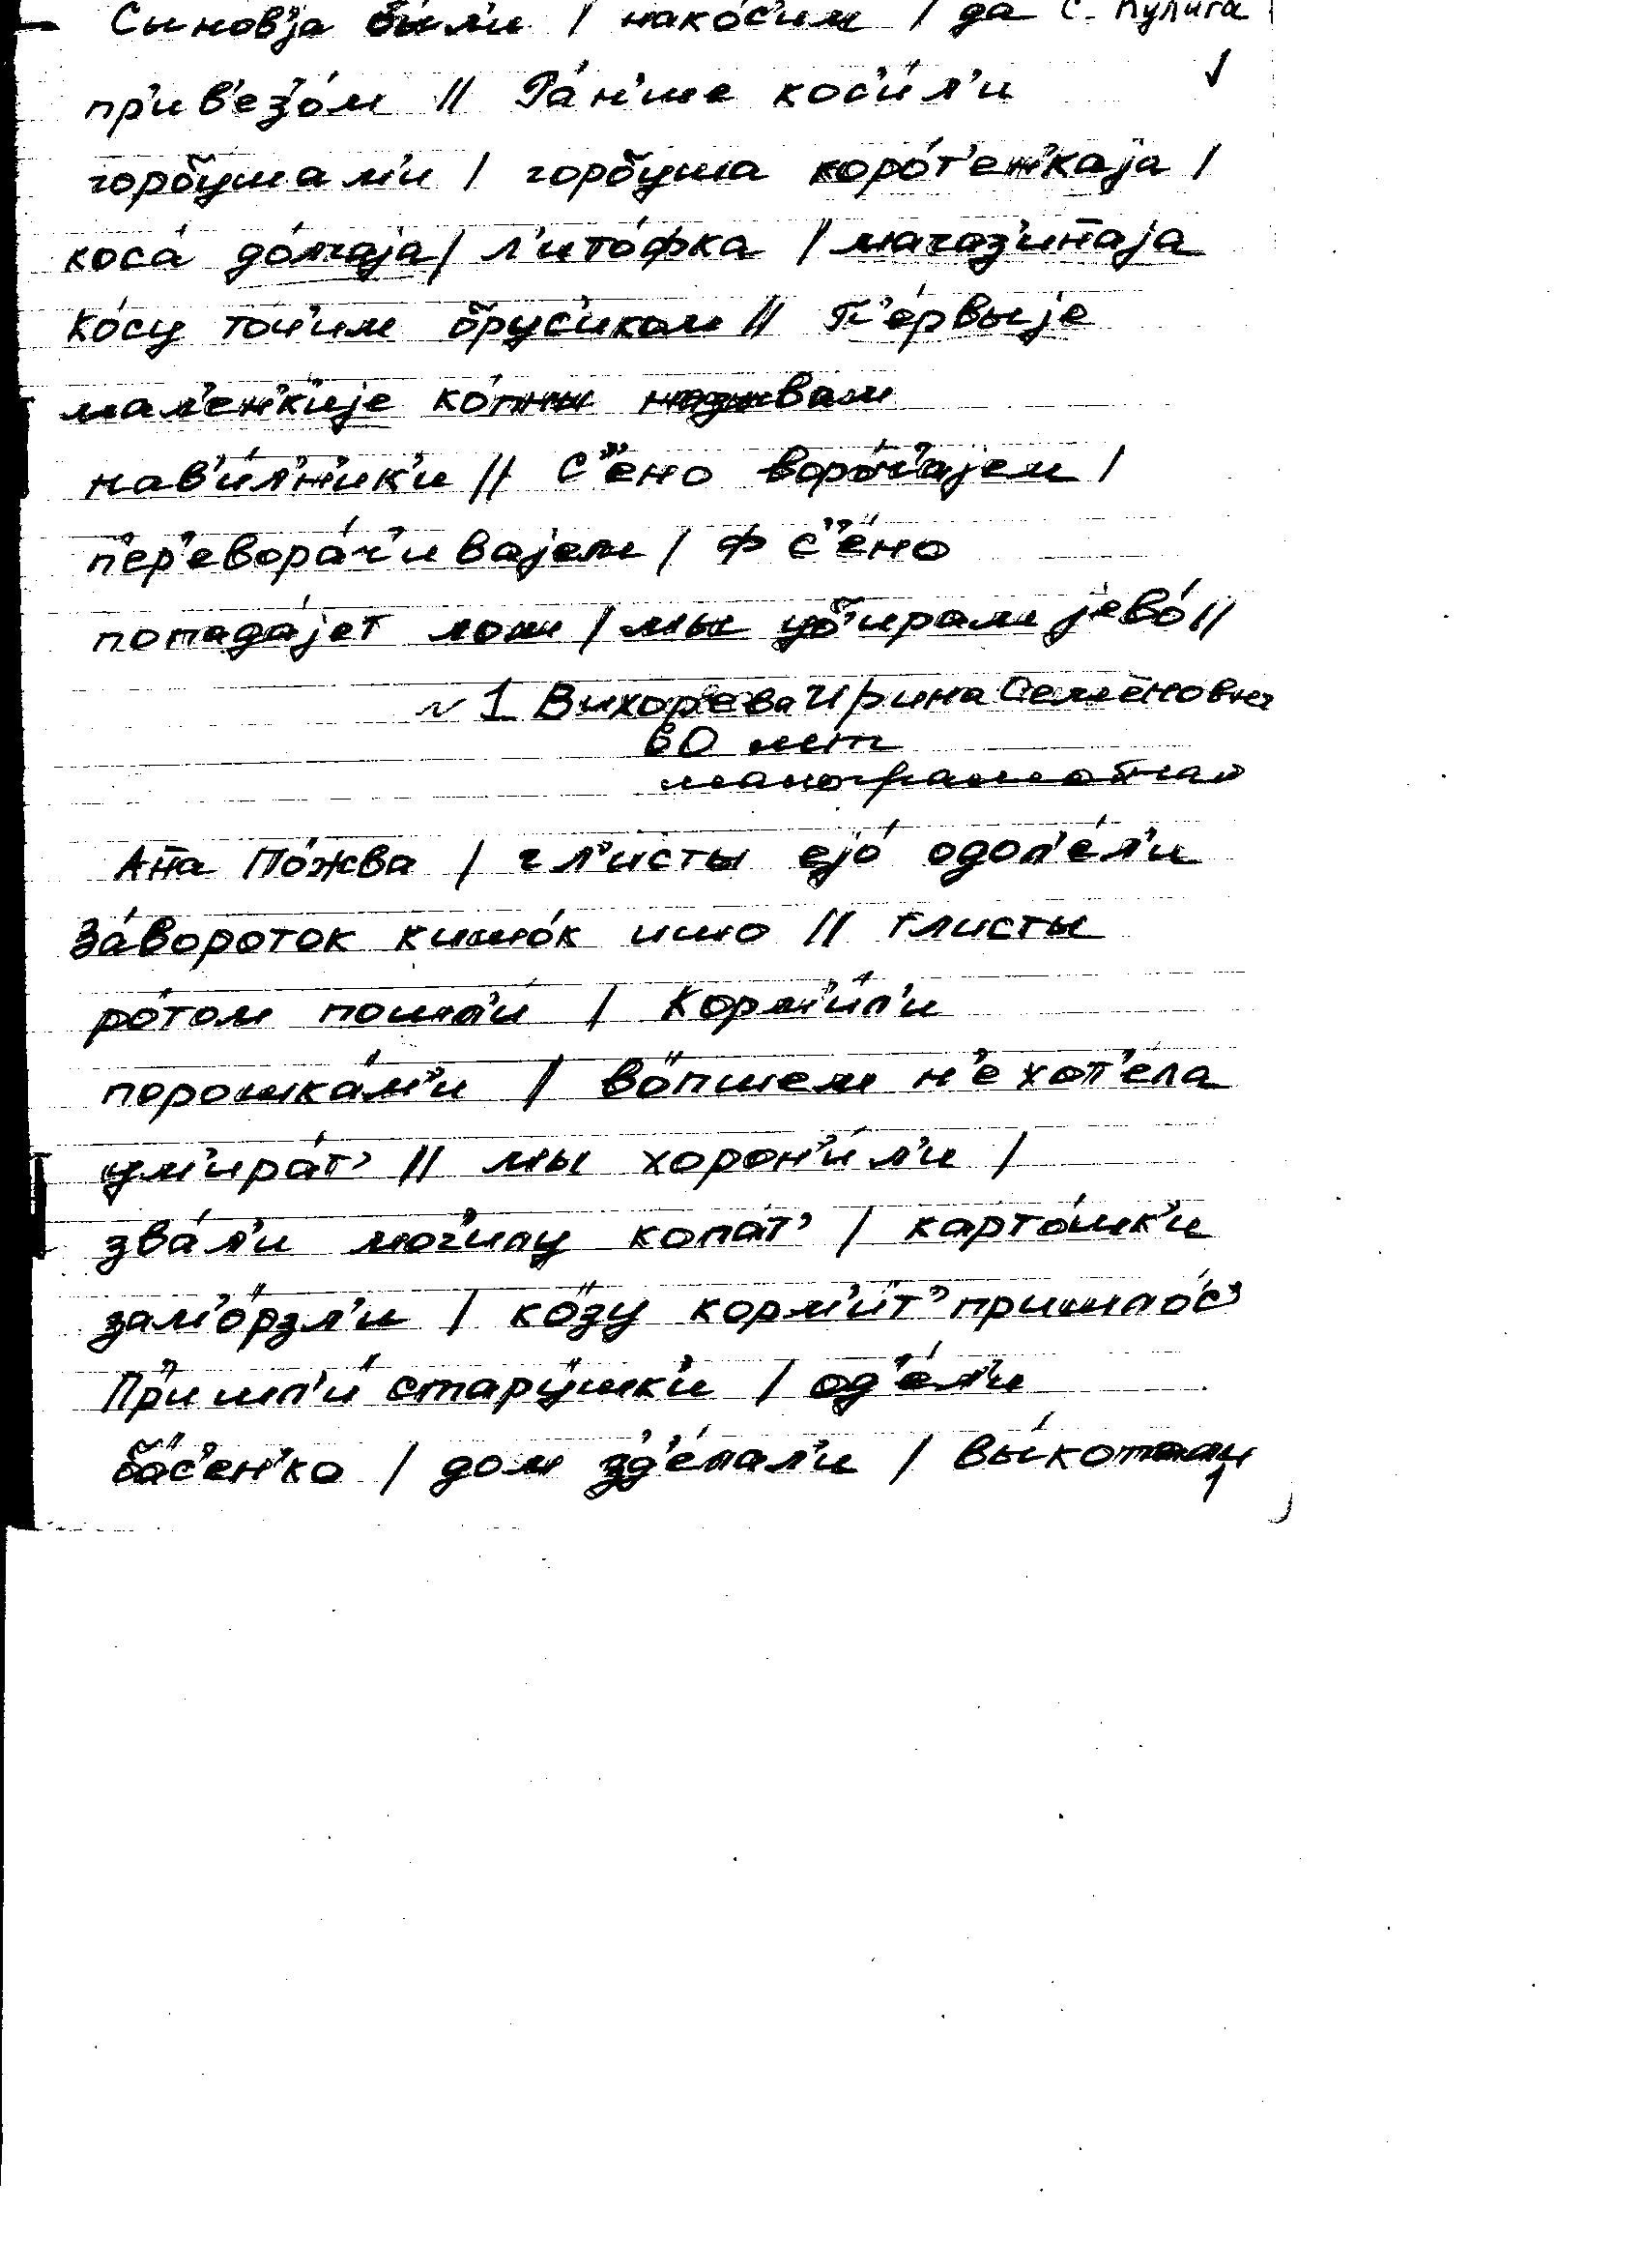 Сынов'jа́ бы́л'и / нако́с'им / да с. Кулига
пр'ив'ез'о́м // Ра́н'ше кос'и́л'и
горбушам'и / горбуша коро́т'ен'каjа /
коса́ до́лгаjа / л'ито́фка / магаз'ин̄аjа
ко́су точ'им брус'иком // П'е́рвыjе
мал'ен'к'иjе ко́пны называли
нав'и́л'н'ик'и // С'е́но воро́ч'аjем /
п'ер'евора́ч'иваjем / ф с'е́но
попада́jет / мы уб'ирали jево́ //
N 1 Вихорева Ирина Семёновна
60 лет
малограмотная
Ан̄а По́жва / гл'исты еjо́ одол'е́л'и
За́вороток кишо́к ишо // Глисты
ро́том пошл'и́ / Корм'и́л'и
порошка́м'и / во́пшем н'е хот'е́ла
ум'ира́т' // мы хорон'и́л'и /
зва́л'и мог'илу копа́т' / карто́шк'и
зам'о́рзл'и / ко́зу корм'и́т' пришло́с'
Пр'ишл'и́ стару́шк'и / од'е́л'и
ба́с'ен'ко / дом зд'е́лал'и /